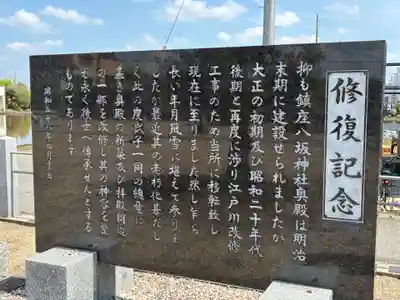 修復記念
抑も鎮座八坂神社奥殿は明治
末期に建設せられましたが
大正の初期及び昭和二十年代
後期と再度に渉り江戸川改修
工事のため当所に移転致し
現在に至りました然し乍ら
長い年月風雪に堪えて参りま
したが最近其の老朽化甚だし
く此の度氏子一同の
基き奥殿の新築及び拝殿周辺
の一部を改修し其の神容を整
え永く後世へ伝承せんとする
ものであります
昭和五十八年四月十日